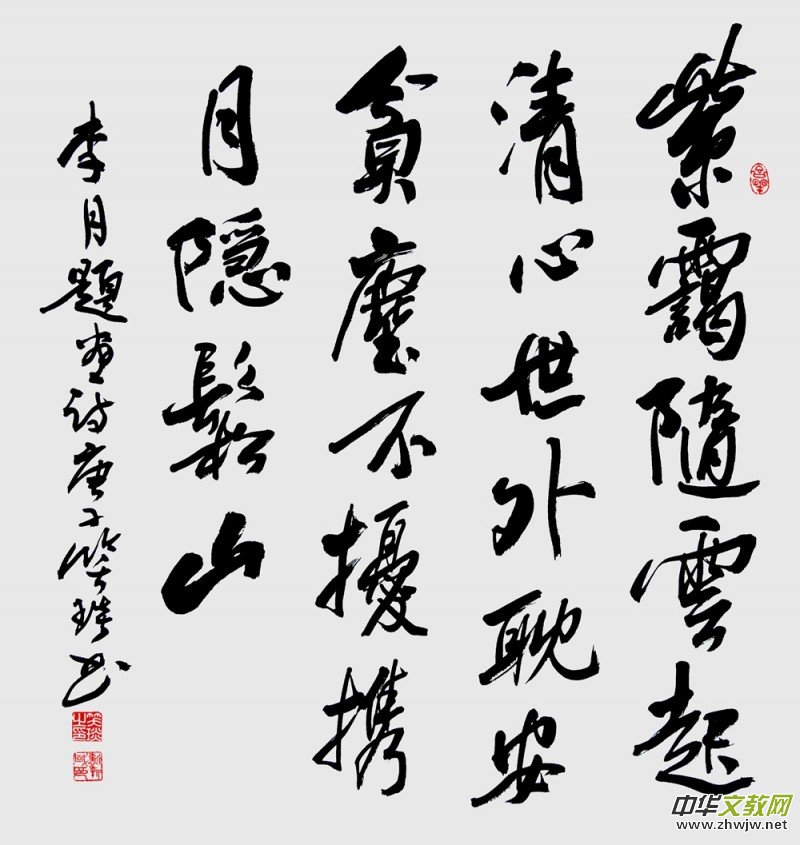 紫靄隨雲起
清心世外耽安
貧塵不擾攜
月隱鬆山
李月題畫詩庚子
書
中华文教网
www.zhwjw.net